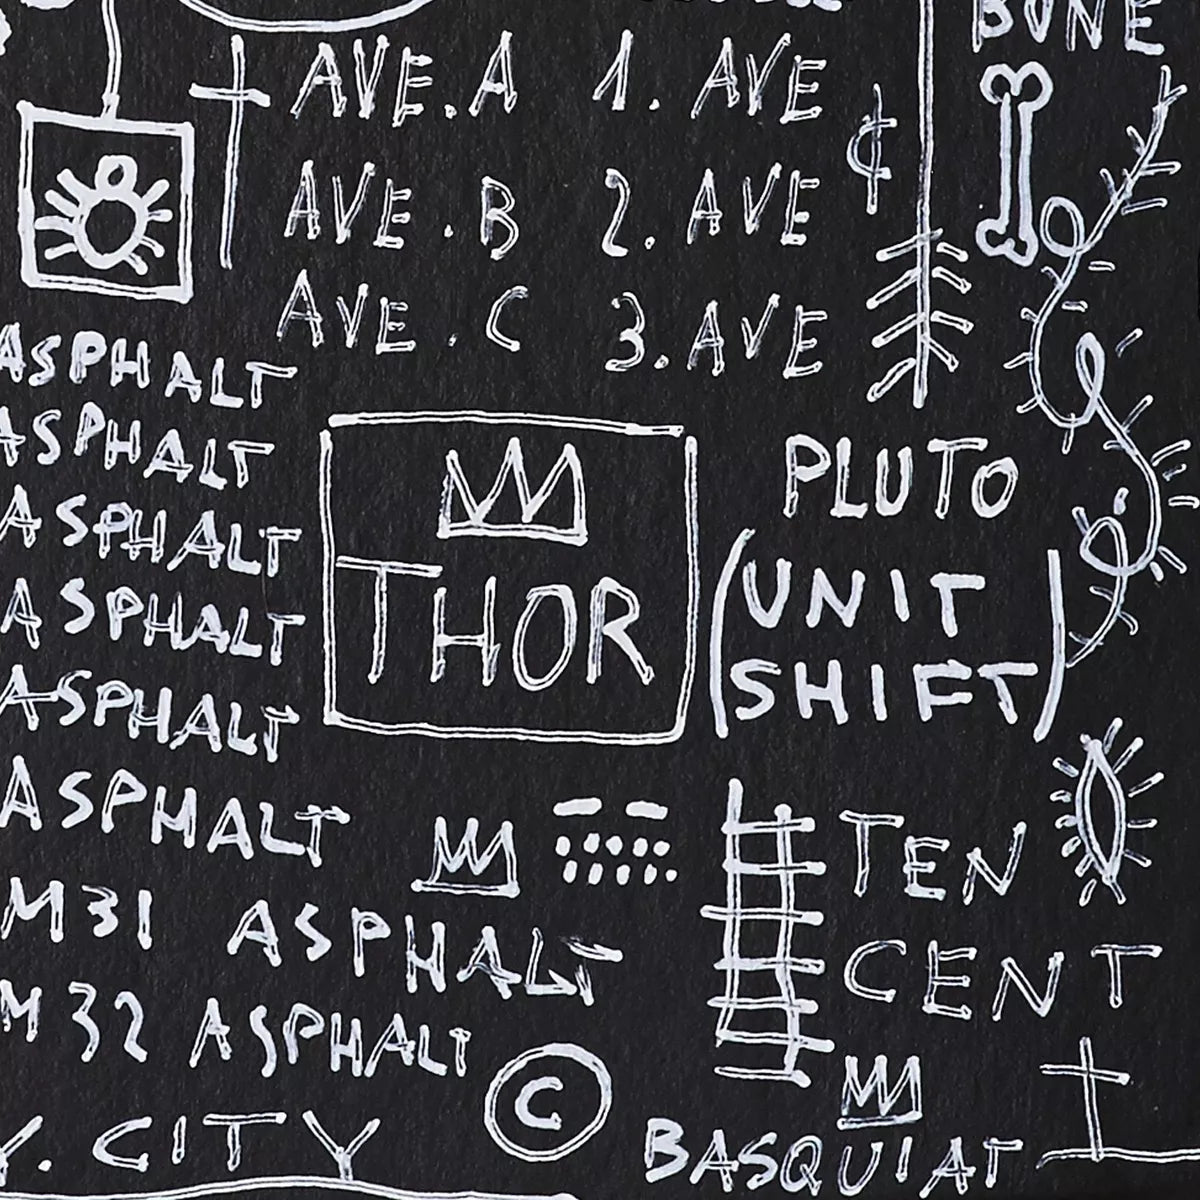 BONE
AVE. A
1. AVE
¢
AVE. B
2. AVE
AVE. C
3. AVE
ASPHALT
ASPHALT
ASPHALT
ASPHALT
ASPHALT
ASPHALT
THOR
PLUTO
(UNIT
SHIFT)
TEN
CENT
M31 ASPHALT
M32 ASPHALT
Y. CITY
©
BASQUIAT